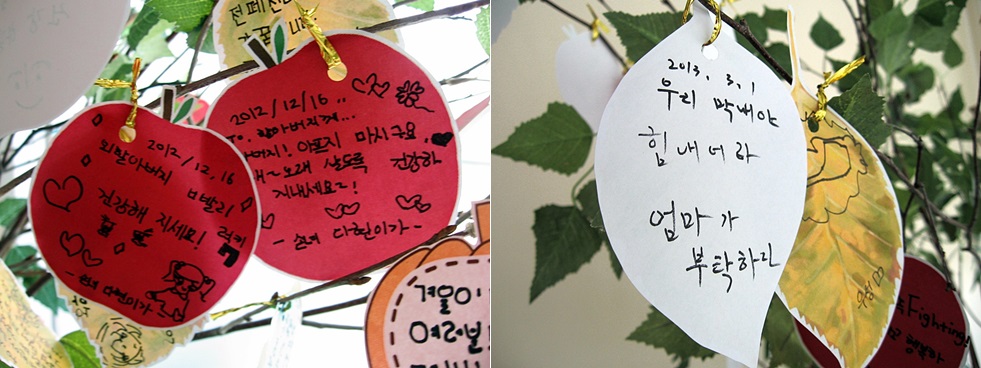 전페
2012, 12, 16
외할아버지 빨리
건강해 지세요! 럭키
- 손녀 다현이가 -
2012/12/16..
To. 할아버지께...
할아버지! 아프지 마시구요,
오래~오래 살도록 건강하
지내세요~!
- 손녀 다현이가 -
겨울이
여러분
2013. 3. 1
우리 막내야
힘내너라
엄마가
부탁하란
Fighting!
행복하